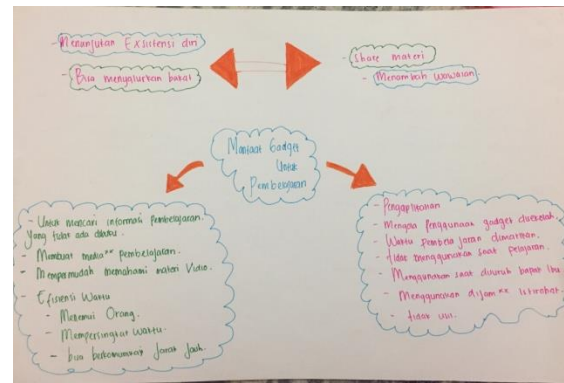 - Menunjutan Exsistensi diri
- Bisa menyalurkan bakat
- Share materi
- Menambah wawasan
Manfaat Gadget
Untuk
Pembelajaran
- Untuk mencari informasi Pembelajaran.
Yang tidak ada dibuku.
- Membuat media" Pembelajaran.
- Mempermudah memahami materi Vidio.
- Efisiensi Waktu
- Menemui Orang.
- Mempersingkat Waktu.
- bisa berkomunikasi Jarak Jauh.
- Pengaplikasian
- Mengapa Penggunaan gadget disekolah.
- Waktu Pembelajaran dimatikan.
- tidak menggunakan saat pelajaran.
- Menggunakan saat disuruh bapak Ibu
- Menggunakan dijam"